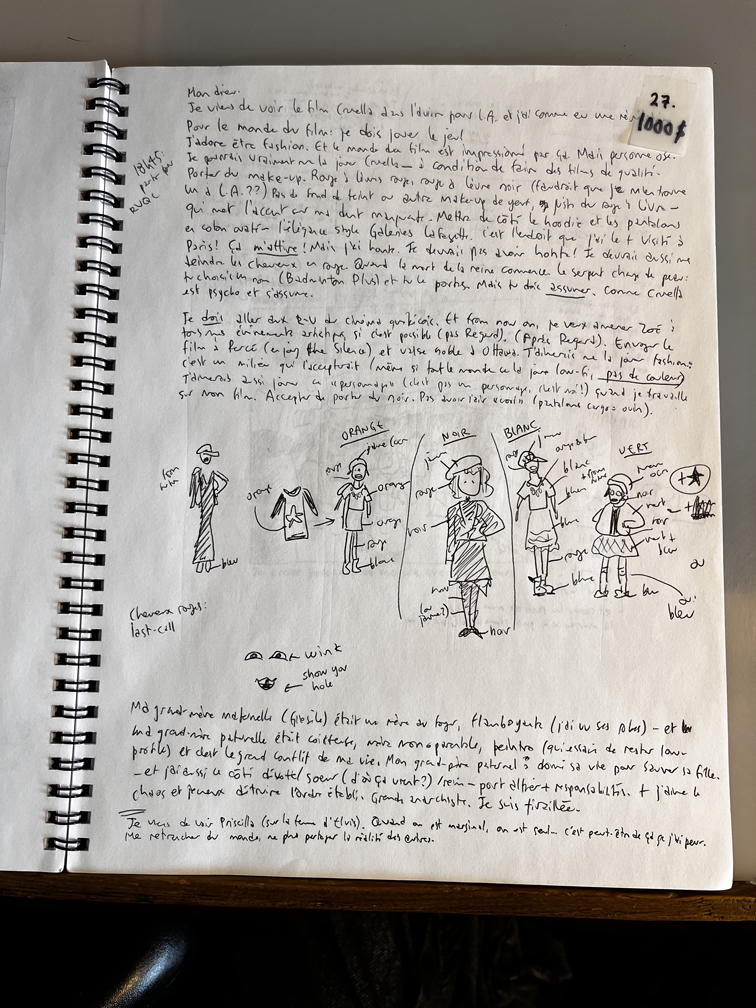 27.
1000$
Mon dieu.
Je viens de voir le film Cruella dans l'avion pour L.A. et j'ai comme eu une
Pour le monde du film: je dois jouer le jeu!
J'adore être fashion. Et le monde du film est impressionné par ça. Mais personne ose.
Je pourrais vraiment me la jouer Cruella — à condition de faire des films de qualité.
Porter du make-up. Rouge à lèvres rouge, rouge à lèvre noir (faudrait que je m'en trouve
un à L.A.??) Pas de fond de teint ou autre make-up de yeux, juste du rouge à lèvre —
qui met l'accent sur ma dent manquante. Mettre de côté le hoodie et les pantalons
en coton ouaté — l'élégance style Galeries Lafayette. C'est l'endroit que j'ai le + visité à
Paris! Ça m'attire! Mais j'ai honte. Je devrais pas avoir honte! Je devrais aussi me
teindre les cheveux en rouge. Quand la mort de la reine commence le serpent change de peau:
tu choisis un nom (Badminton Plus) et tu le portes. Mais tu dois assumer. Comme Cruella
est psycho et s'assume.
18h45:
RVQC
Je dois aller aux R-V du cinéma québécois. Et from now on, je veux amener Zoé à
tous mes événements artistiques si c'est possible (pas Regard). (Après Regard). Envoyer le
film à Percé (enjoy the silence) et valse noble à Ottawa. J'aimerais me la jouer fashion:
c'est un milieu qui l'accepterait (même si tout le monde se la joue low-fi, pas de couleur)
J'aimerais aussi jouer ce "personnage" (c'est pas un personnage, c'est moi!) quand je travaille
sur mon film. Accepter de porter du noir. Pas avoir l'air (pantalons cargo = ouin).
ORANGE
NOIR
BLANC
VERT
orange
rouge
orange
orange
rouge
blanc
bleu
jaune
rouge
noir
noir
(ou jaune?)
noir
rouge
blanc
bleu
bleu
rouge
blanc
noir
vert
noir
vert +
ou
ou:
bleu
Cheveux rouges:
last-call
wink
show your
hole
Ma grand-mère maternelle était une mère au foyer, flamboyante (j'ai vu ses robes) — et
ma grand-mère paternelle était coiffeuse, mère monoparentale, peintre (qui essaie de rester low-
profile) et c'est le grand conflit de ma vie. Mon grand-père paternel a donné sa vie pour sauver sa fille.
— et j'ai aussi ce côté dévote/soeur (d'où ça vient?) /reine — port altier + responsabilités. + j'aime le
chaos et je veux détruire l'ordre établi. Grande anarchiste. Je suis tiraillée.
Je viens de voir Priscilla (sur la femme d'Elvis). Quand on est marginal, on est seul — c'est peut-être de ça que j'ai peur.
Me retrancher du monde, ne plus partager la réalité des autres.